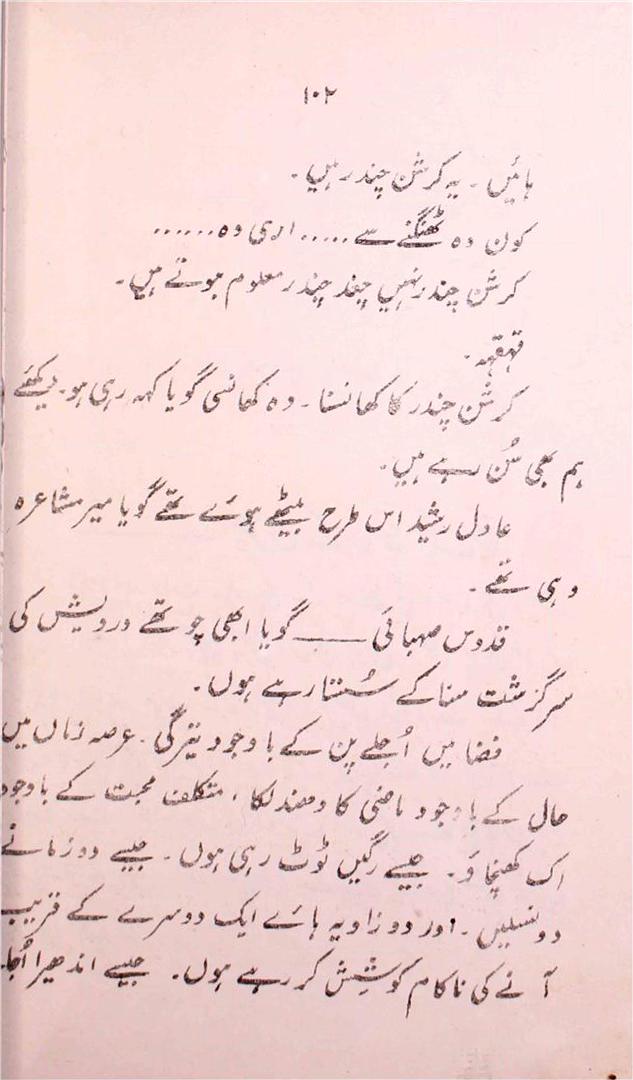 ۱۰۲
ہائیں ۔ یہ کرشن چندر ہیں ۔
کون وہ ٹھنگنے سے ..... اری وہ ......
کرشن چندر نہیں چغد چندر معلوم ہوتے ہیں ۔
قہقہہ ۔
کرشن چندر کا کھانسنا ۔ وہ کھانسی گویا کہہ رہی ہو ۔ دیکھئے
ہم بھی سُن رہے ہیں ۔
عادل رشید اس طرح بیٹھے ہوئے تھے گویا میر مشاعرہ
وہی تھے ۔
قدوس صہبائی ——— گویا ابھی چوتھے درویش کی
سرگزشت سنا کے سُستا رہے ہوں ۔
فضا میں اُجلے پن کے باوجود تیرگی ۔ عرصہ زماں میں
حال کے باوجود ماضی کا دھندلکا ، متکلف محبت کے باوجود
اک کھنچاؤ ۔ جیسے رگیں ٹوٹ رہی ہوں ۔ جیسے دو زمانے
دو نسلیں ۔ اور دو زاویہ ہائے ایک دوسرے کے قریب
آنے کی ناکام کوشِش کر رہے ہوں ۔ جیسے اندھیرا